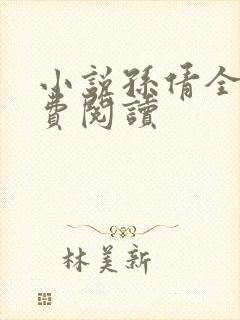 小説孫倩全
費閱讀
林美新